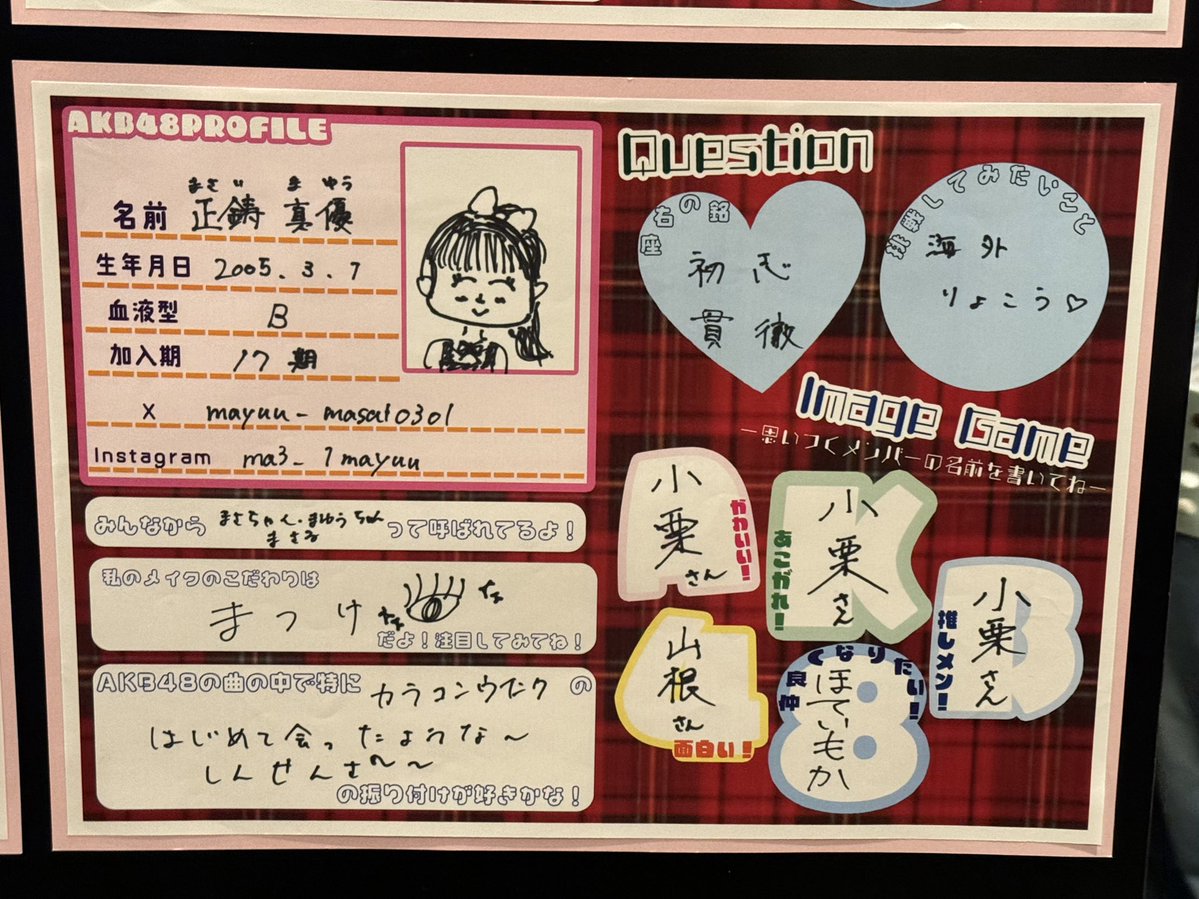 AKB48PROFILE
まさい まゆう
名前 正鋳 真優
生年月日 2005.3.7
血液型 B
加入期 17期
X mayuu_masai0301
Instagram ma3_1mayuu
みんなから まさちゃん・まゆうちゃん
まさる
って呼ばれてるよ！
私のメイクのこだわりは
まつげ
だよ！注目してみてね！
AKB48の曲の中で特に カラコンウインク の
はじめて会ったような〜
しんせんさ〜〜
の振り付けが好きかな！
Question
座右の銘
初志
貫徹
挑戦してみたいこと
海外
りょこう♡
Image Game
ー思いつくメンバーの名前を書いてねー
小栗さん
かわいい！
小栗さん
あこがれ！
小栗さん
推しメン！
山根さん
面白い！
仲良くなりたい！
ほていもか